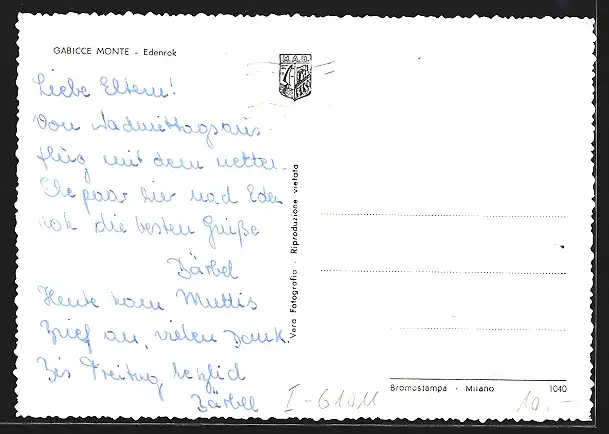 GABICCE MONTE - Edenrok
M.A.R.
Liebe Eltern!
Vom Nachmittagsaus-
flug mit dem netten
Ehepaar hier nach Eden
rok die besten Grüße
Bärbel
Heute kam Muttis
Brief an, vielen Dank.
Bis Freitag herzlich
Bärbel
Vera Fotografia - Riproduzione vietata
Bromostampa - Milano 1040
I-61011
10.-